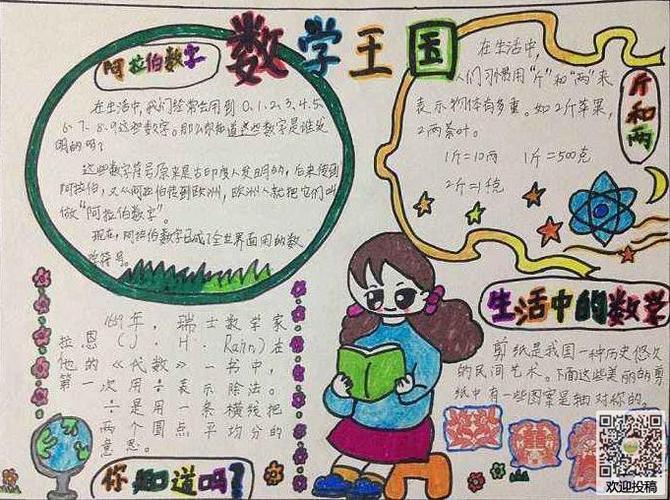 数学王国
阿拉伯数字
在生活中,我们经常会用到0.1.2.3.4.5
6.7.8.9这些数字。那么你知道这些数字是谁发
明的吗?
这些数字符号原来是古印度人发明的,后来传到
阿拉伯,又从阿拉伯传到欧洲,欧洲人就把它们叫
做“阿拉伯数字”。
现在,阿拉伯数字已成了全世界通用的数
学符号。
斤和两
在生活中,
人们习惯用“斤”和“两”来
表示物体有多重。如2斤苹果,
2两茶叶。
1斤=10两 1斤=500克
2斤=1千克
年,瑞士数学家
拉恩(J.H.Rahn)在
他的《代数》一书中,
第一次用÷表示除法。
÷是用一条横线把
两个圆点平均分的
意思。
你知道吗?
生活中的数学
剪纸是我国一种历史悠久
的民间艺术。下面这些美丽的剪
纸中有一些图案是轴对称的。
欢迎投稿